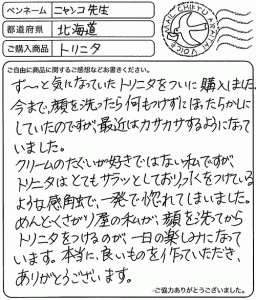 ペンネーム ニャンコ先生
都道府県 北海道
ご購入商品 トリニタ
ご自由に商品に関するご感想などお書きください。
ず〜と気になっていたトリニタをついに購入しました。
今まで、顔を洗ったら何もつけずにほったらかしに
していたのですが、最近はカサカサするようになって
いました。
クリームのたぐいが好きではない私ですが、
トリニタはとてもサラッとしており、つくをつけている
ような感触で、一発で惚れてしまいました。
めんどくさがり屋の私が、顔を洗ってから
トリニタをつけるのが、一日の楽しみになって
います。本当に、良いものを作っていただき、
ありがとうございます。
ご協力ありがとうございました。